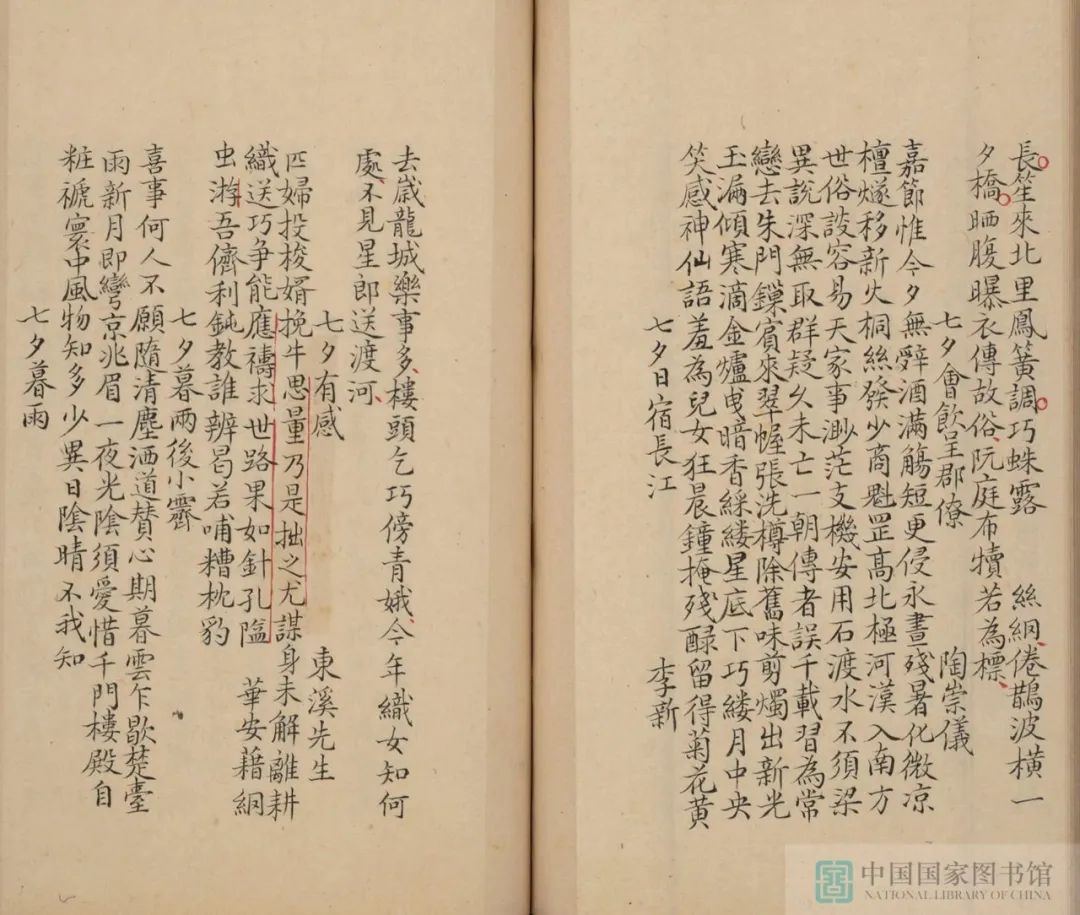 長笙來北里鳳簧調巧蛛露 絲網倦鵲波横一
夕橋晒腹曝衣傳故俗阮庭布犢若為標
七夕會飲呈郡僚 陶崇儀
嘉節惟今夕無辤酒滿觴短更侵永晝殘暑化微凉
檀燧移新火桐絲發少商魁罡高北極河漢入南方
世俗談容易天家事渺茫支機安用石渡水不須梁
異說深無取群疑久未亡一朝傳者誤千載習為常
戀去朱門鏁賓來翠幄張洗樽除舊味剪燭出新光
玉漏傾寒滴金爐曳暗香綵縷星底下巧縷月中央
笑感神仙語羞為兒女狂晨鐘掩殘醁留得菊花黄
七夕日宿長江 李新
去歲龍城樂事多樓頭乞巧傍青娥今年織女知何
處不見星郎送渡河
七夕有感 東溪先生
匹婦投梭婿挽牛思量乃是拙之尤謀身未解離耕
織送巧争能應禱求世路果如針孔隘 華安藉網
虫游吾儕利鈍教誰辨曷若哺糟枕豹
七夕暮雨後小霽
喜事何人不願隨清塵洒道賛心期暮雲乍歇楚臺
雨新月即彎京兆眉一夜光陰須愛惜千門樓殿自
粧褫寰中風物知多少異日陰晴不我知
七夕暮雨
中国国家图书馆
NATIONAL LIBRARY OF CHINA